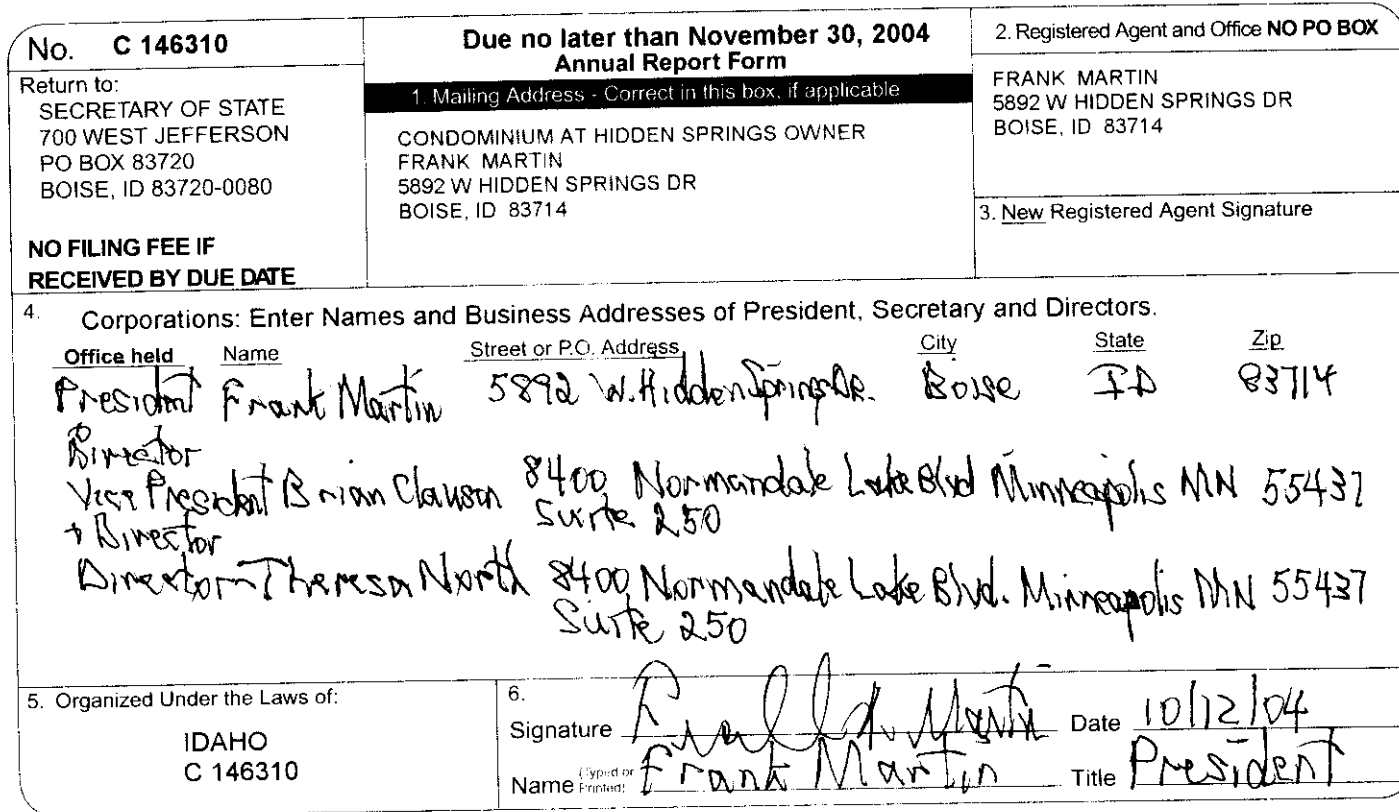 No. C 146310
Return to:
SECRETARY OF STATE
700 WEST JEFFERSON
PO BOX 83720
BOISE, ID 83720-0080
NO FILING FEE IF
RECEIVED BY DUE DATE
Due no later than November 30, 2004
Annual Report Form
1. Mailing Address - Correct in this box, if applicable
CONDOMINIUM AT HIDDEN SPRINGS OWNER
FRANK MARTIN
5892 W HIDDEN SPRINGS DR
BOISE, ID 83714
2. Registered Agent and Office NO PO BOX
FRANK MARTIN
5892 W HIDDEN SPRINGS DR
BOISE, ID 83714
3. New Registered Agent Signature
4. Corporations: Enter Names and Business Addresses of President, Secretary and Directors.
Office held Name Street or P.O. Address City State Zip
President Frank Martin 5892 W. Hidden Springs DR. Boise ID 83714
Director
Vice President Brian Clauson 8400 Normandale Lake Blvd Minneapolis MN 55437
+ Director Suite 250
Director - Theresa North 8400 Normandale Lake Blvd. Minneapolis MN 55437
Suite 250
5. Organized Under the Laws of:
IDAHO
C 146310
6.
Signature Martin Date 10/12/04
Name (Typed or Printed) Frank Martin Title President